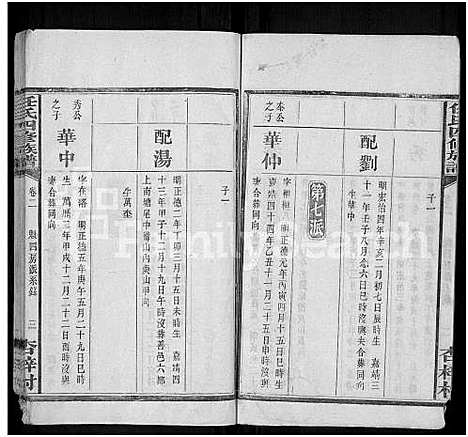 任氏四修族譜
子一
配劉
明宏治四年辛亥二月初七日辰時生 嘉靖三
十一年壬子八月念六日巳時沒與夫合葬同向
生華仲
第七派
奉公
之子
華仲
嘉靖四十四年乙丑十一月二十五日申時沒
合葬同向
子一
配湯
明正德二年丁卯三月十五日未時生 嘉靖四
十三年甲子十二月二十日午時沒葬善邑六都
上南塘尾中
甲向
生萬奎
秀公
之子
華中
字在洛 明正德五年庚午五月二十九日巳時
生 萬曆三年甲戌十二月二十二日酉時沒與
湯合葬同向
任氏四修族譜
卷二
三
杏梓村
FamilySearch